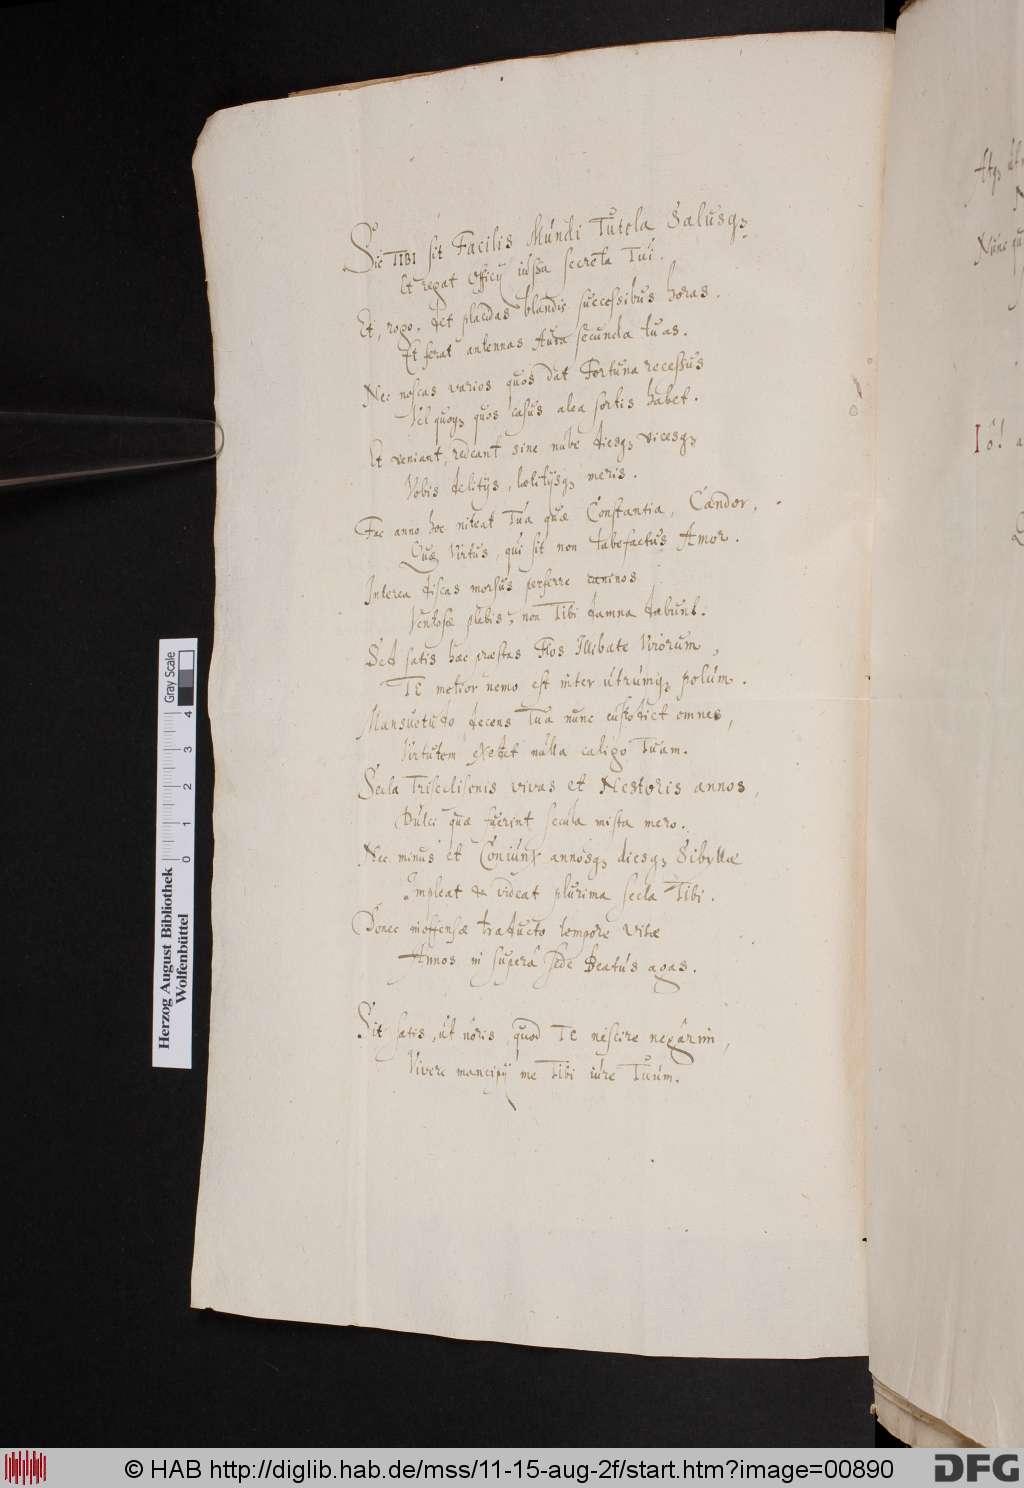 Sic TIBI sit Facilis Mundi Tutela Salusq;
Et regat Officij iussa secreta Tui.
Et, rogo, det placidas blandis successibus horas.
Et ferat antennas Aura secunda tuas.
Nec noscas varios quos dat Fortuna recessus
Vel quoq; quos casus alea sortis habet.
Et veniant, redeant sine nube diesq; vicesq;
Vobis delitijs, lætitijsq; meris.
Fac anno hoc niteat Tua quæ Constantia, Candor,
Quæ Virtus, qui sit non tabefactus Amor.
Interea discas morsus perferre caninos
Ventosæ plebis; non Tibi damna dabunt.
Sed satis hæc præstas Flos Illibate Virorum,
TE melior nemo est inter utrumq; polum.
Mansuetudo decens Tua nunc custodiet omnes,
Virtutem exedet nulla caligo Tuam.
Secla Trisclisenis vivas et Nestoris annos,
Dulci quæ fuerint secula mista mero.
Nec minus et Coniunx annosq; diesq; Sibyllæ
Impleat & videat plurima secla Tibi.
Donec inoffensæ traducto tempore vitæ
Annos in supera sede Beatus agas.
Sit satis, ut noris, quod TE nescire negârim,
Vivere mancipij me Tibi iure Tuum.
Atq;
Nunc
Iô!
Herzog August Bibliothek
Wolfenbüttel
0 1 2 3 4
Gray Scale
© HAB http://diglib.hab.de/mss/11-15-aug-2f/start.htm?image=00890
DFG